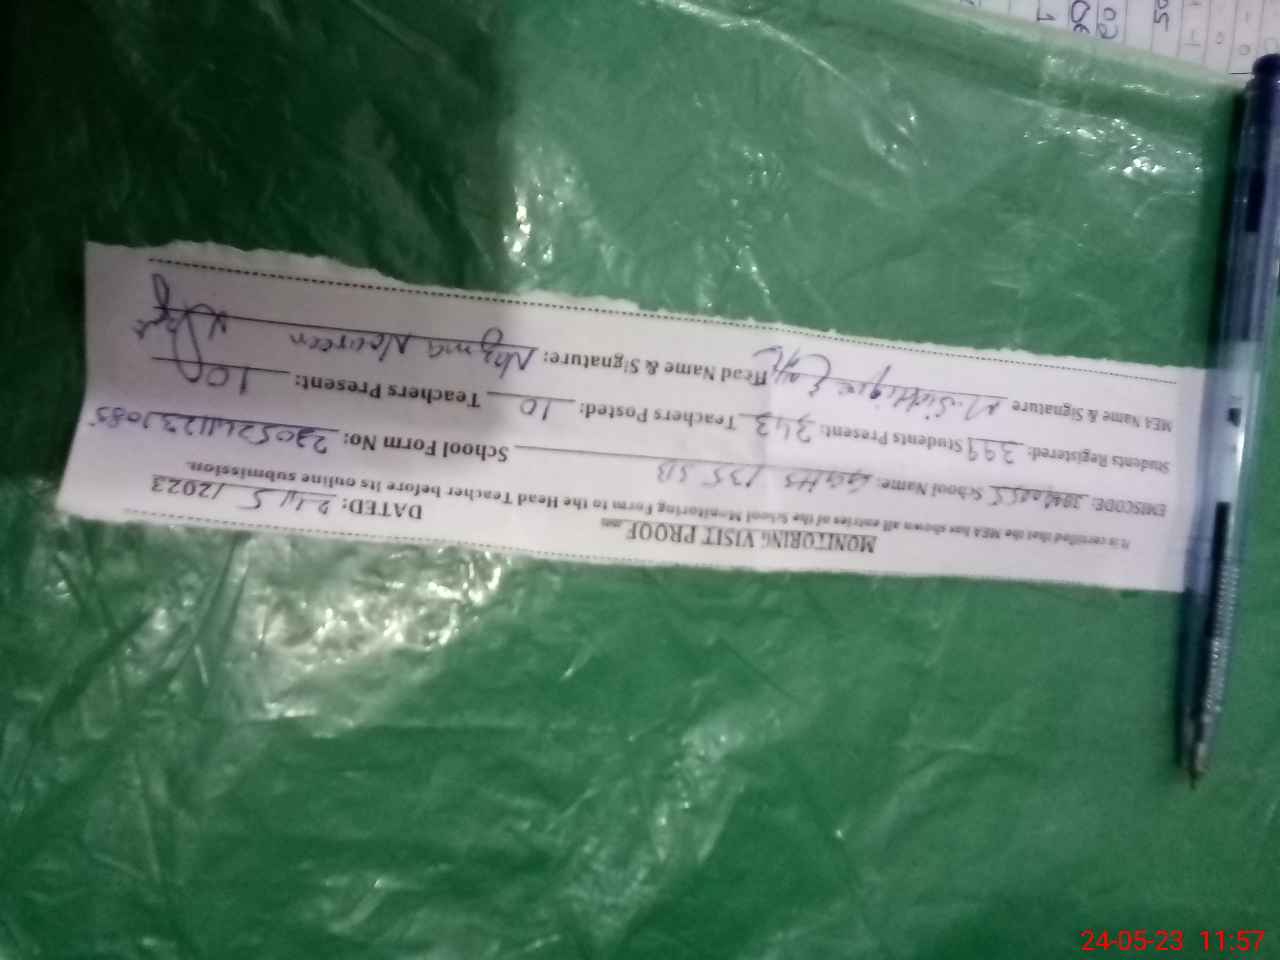 MONITORING VISIT PROOF
It is certified that the MEA has shown all entries of the School Monitoring Form to the Head Teacher before its online submission.
DATED: 24/5/2023
EMISCODE: School Name: GGHS 135 SB School Form No:
Students Registered: 399 Students Present: 343 Teachers Posted: 10 Teachers Present: 10
MEA Name & Signature M. Siddique Head Name & Signature: Najma Noureen
24-05-23 11:57